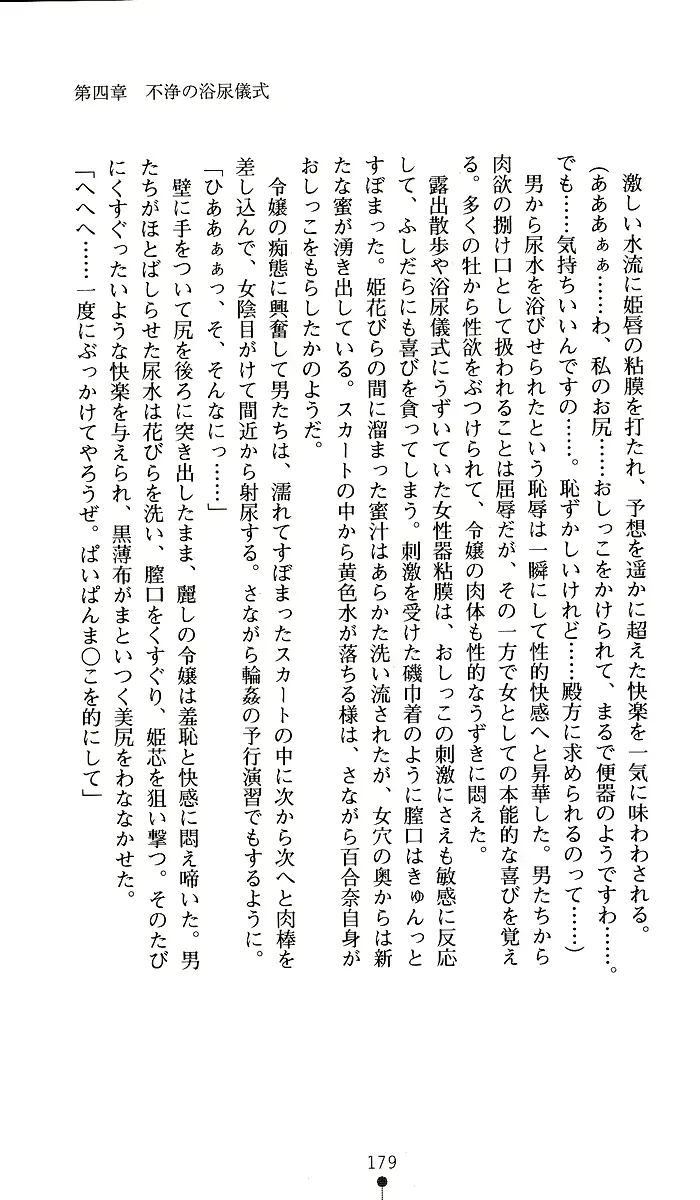 第四章　不浄の浴尿儀式
激しい水流に姫唇の粘膜を打たれ、予想を遥かに超えた快楽を一気に味わわされる。
(あああぁぁ……わ、私のお尻……おしっこをかけられて、まるで便器のようですわ……。
でも……気持ちいいんですの……。恥ずかしいけれど……殿方に求められるのって……)
男から尿水を浴びせられたという恥辱は一瞬にして性的快感へと昇華した。男たちから
肉欲の捌け口として扱われることは屈辱だが、その一方で女としての本能的な喜びを覚え
る。多くの牡から性欲をぶつけられて、令嬢の肉体も性的なうずきに悶えた。
露出散歩や浴尿儀式にうずいていた女性器粘膜は、おしっこの刺激にさえも敏感に反応
して、ふしだらにも喜びを貪ってしまう。刺激を受けた磯巾着のように膣口はきゅんっと
すぼまった。姫花びらの間に溜まった蜜汁はあらかた洗い流されたが、女穴の奥からは新
たな蜜が湧き出している。スカートの中から黄色水が落ちる様は、さながら百合奈自身が
おしっこをもらしたかのようだ。
令嬢の痴態に興奮して男たちは、濡れてすぼまったスカートの中に次から次へと肉棒を
差し込んで、女陰目がけて間近から射尿する。さながら輪姦の予行演習でもするように。
「ひああぁぁっ、そ、そんなにっ……」
壁に手をついて尻を後ろに突き出したまま、麗しの令嬢は羞恥と快感に悶え啼いた。男
たちがほとばしらせた尿水は花びらを洗い、膣口をくすぐり、姫芯を狙い撃つ。そのたび
にくすぐったいような快楽を与えられ、黒薄布がまといつく美尻をわななかせた。
「へへへ……一度にぶっかけてやろうぜ。ぱいぱんま〇こを的にして」
179